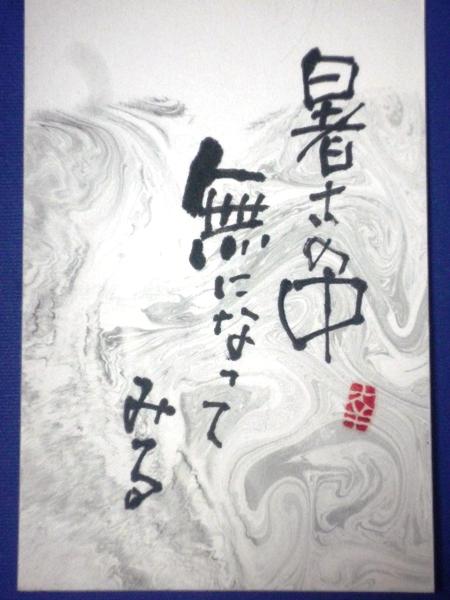 暑さの中
無になって
みる